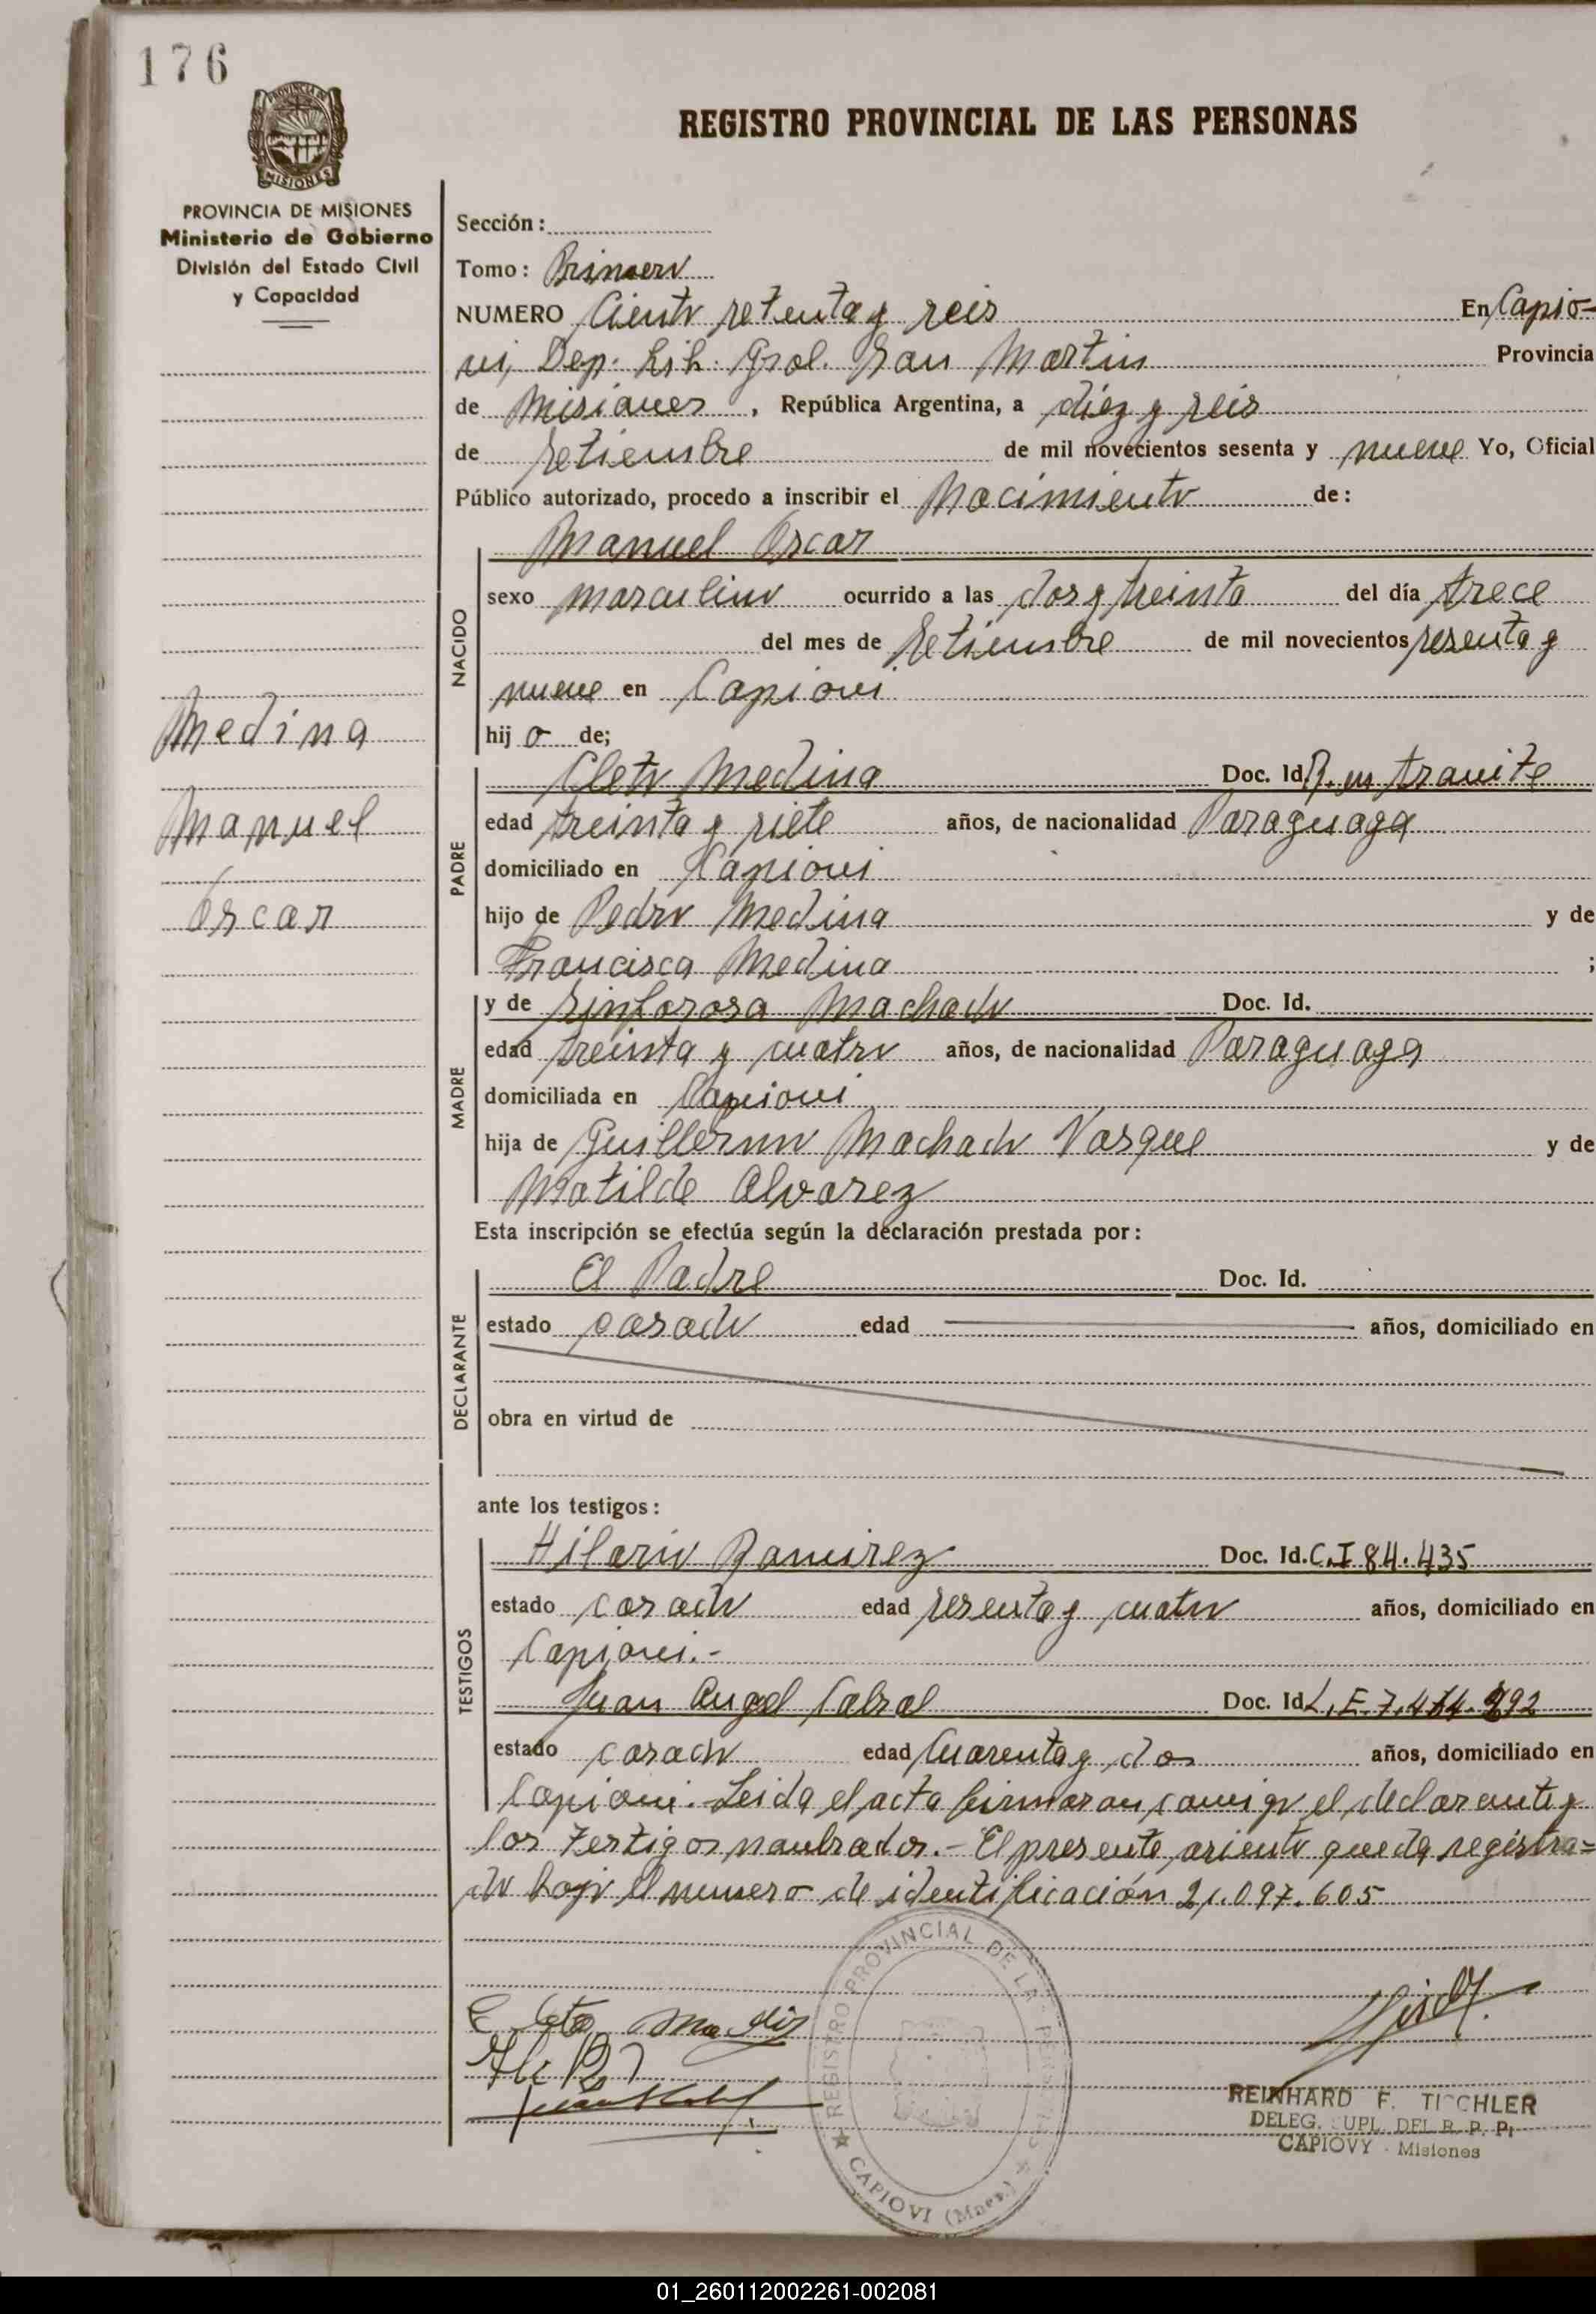 176
PROVINCIA DE MISIONES
PROVINCIA DE MISIONES
Ministerio de Gobierno
División del Estado Civil
y Capacidad
REGISTRO PROVINCIAL DE LAS PERSONAS
Sección:
Tomo: Primero
NUMERO Ciento setenta y seis En Capio-
vi, Dep. Lib. Gral. San Martin Provincia
de Misiones, República Argentina, a diez y seis
de setiembre de mil novecientos sesenta y nueve Yo, Oficial
Público autorizado, procedo a inscribir el Nacimiento de:
Manuel Oscar
NACIDO
sexo masculino ocurrido a las dos y treinta del día trece
del mes de setiembre de mil novecientos sesenta y
nueve en Capiovi
hijo de;
Medina
Manuel
Oscar
PADRE
Cleto Medina Doc. Id. en tramite
edad treinta y siete años, de nacionalidad Paraguaya
domiciliado en Capiovi
hijo de Pedro Medina y de
Francisca Medina ;
MADRE
y de Sinforosa Machado Doc. Id.
edad treinta y cuatro años, de nacionalidad Paraguaya
domiciliada en Capiovi
hija de Guillermo Machado Vasque y de
Matilde Alvarez
Esta inscripción se efectúa según la declaración prestada por:
DECLARANTE
El Padre Doc. Id.
estado casado edad años, domiciliado en
obra en virtud de
ante los testigos:
TESTIGOS
Hilario Ramirez Doc. Id. C.I 84.435
estado casado edad sesenta y cuatro años, domiciliado en
Capiovi.-
Juan Angel Cabral Doc. Id. L.E.
estado casado edad Cuarenta y dos años, domiciliado en
Capiovi.- Leida el acta firmaron conmigo el declarante y
los testigos nombrados.- El presente asiento queda registra=
do bajo el numero de identificación 21.097.605
REGISTRO PROVINCIAL DE LAS PERSONAS
CAPIOVI (Mnes.)
REINHARD F. TISCHLER
DELEG. SUPL. DEL R. P. P.
CAPIOVY - Misiones
01_260112002261-002081